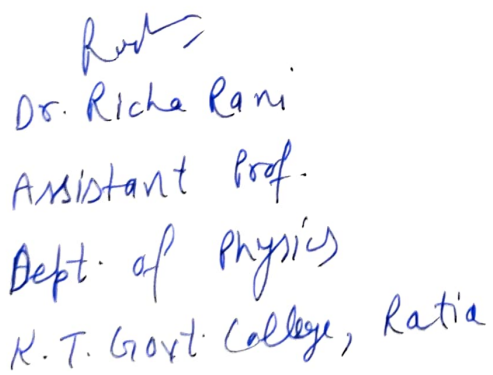 Dr. Richa Rani
Assistant Prof.
Dept. of Physics
K. T. Govt. College, Ratia